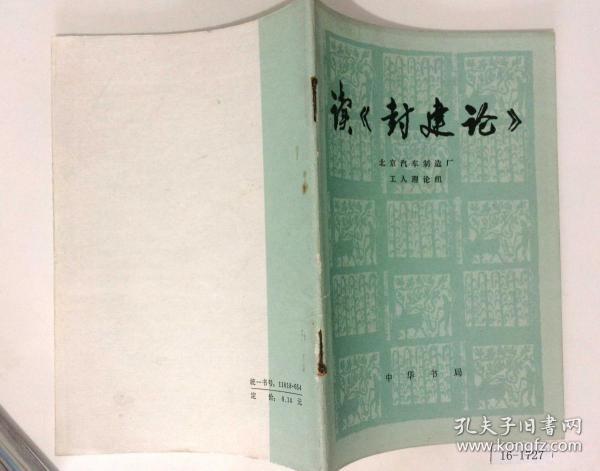 读《封建论》
北京汽车制造厂
工人理论组
中华书局
统一书号：11018·654
定 价：0.14 元
孔夫子旧书网
www.kongfz.com
16-1727